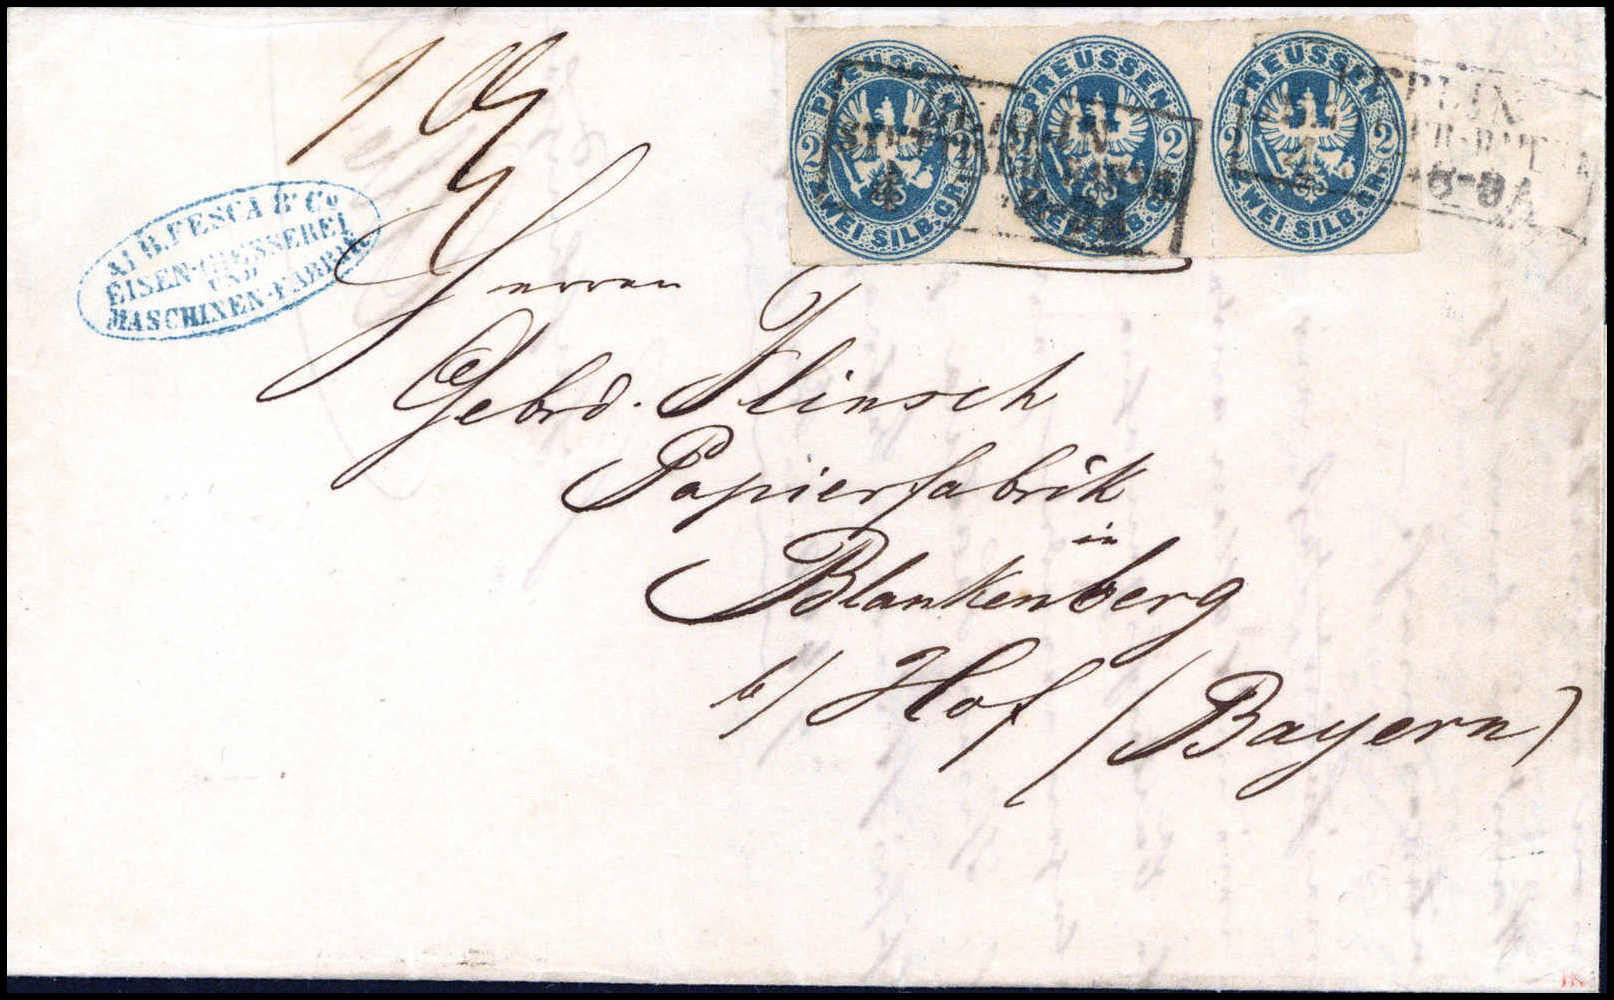 ALB. FESCA & Co
EISEN-GIESSEREI
UND
MASCHINEN-FABRIK
PREUSSEN
2 2
ZWEI SILB. GR.
PREUSSEN
2 2
ZWEI SILB. GR.
PREUSSEN
2 2
ZWEI SILB. GR.
BERLIN
BERLIN
8-9A
Herren
Gebrd. Flinsch
Papierfabrik
in
Blankenberg
b/ Hof (Bayern)